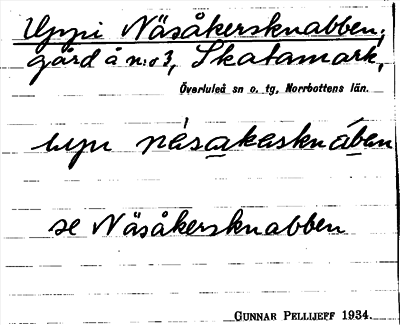 Uppi Näsåkersknabben,
gård å n:o 3, Skatamark,
Överluleå sn o. tg, Norrbottens län.
upi näsakasknában
se Näsåkersknabben
GUNNAR PELLIJEFF 1934.